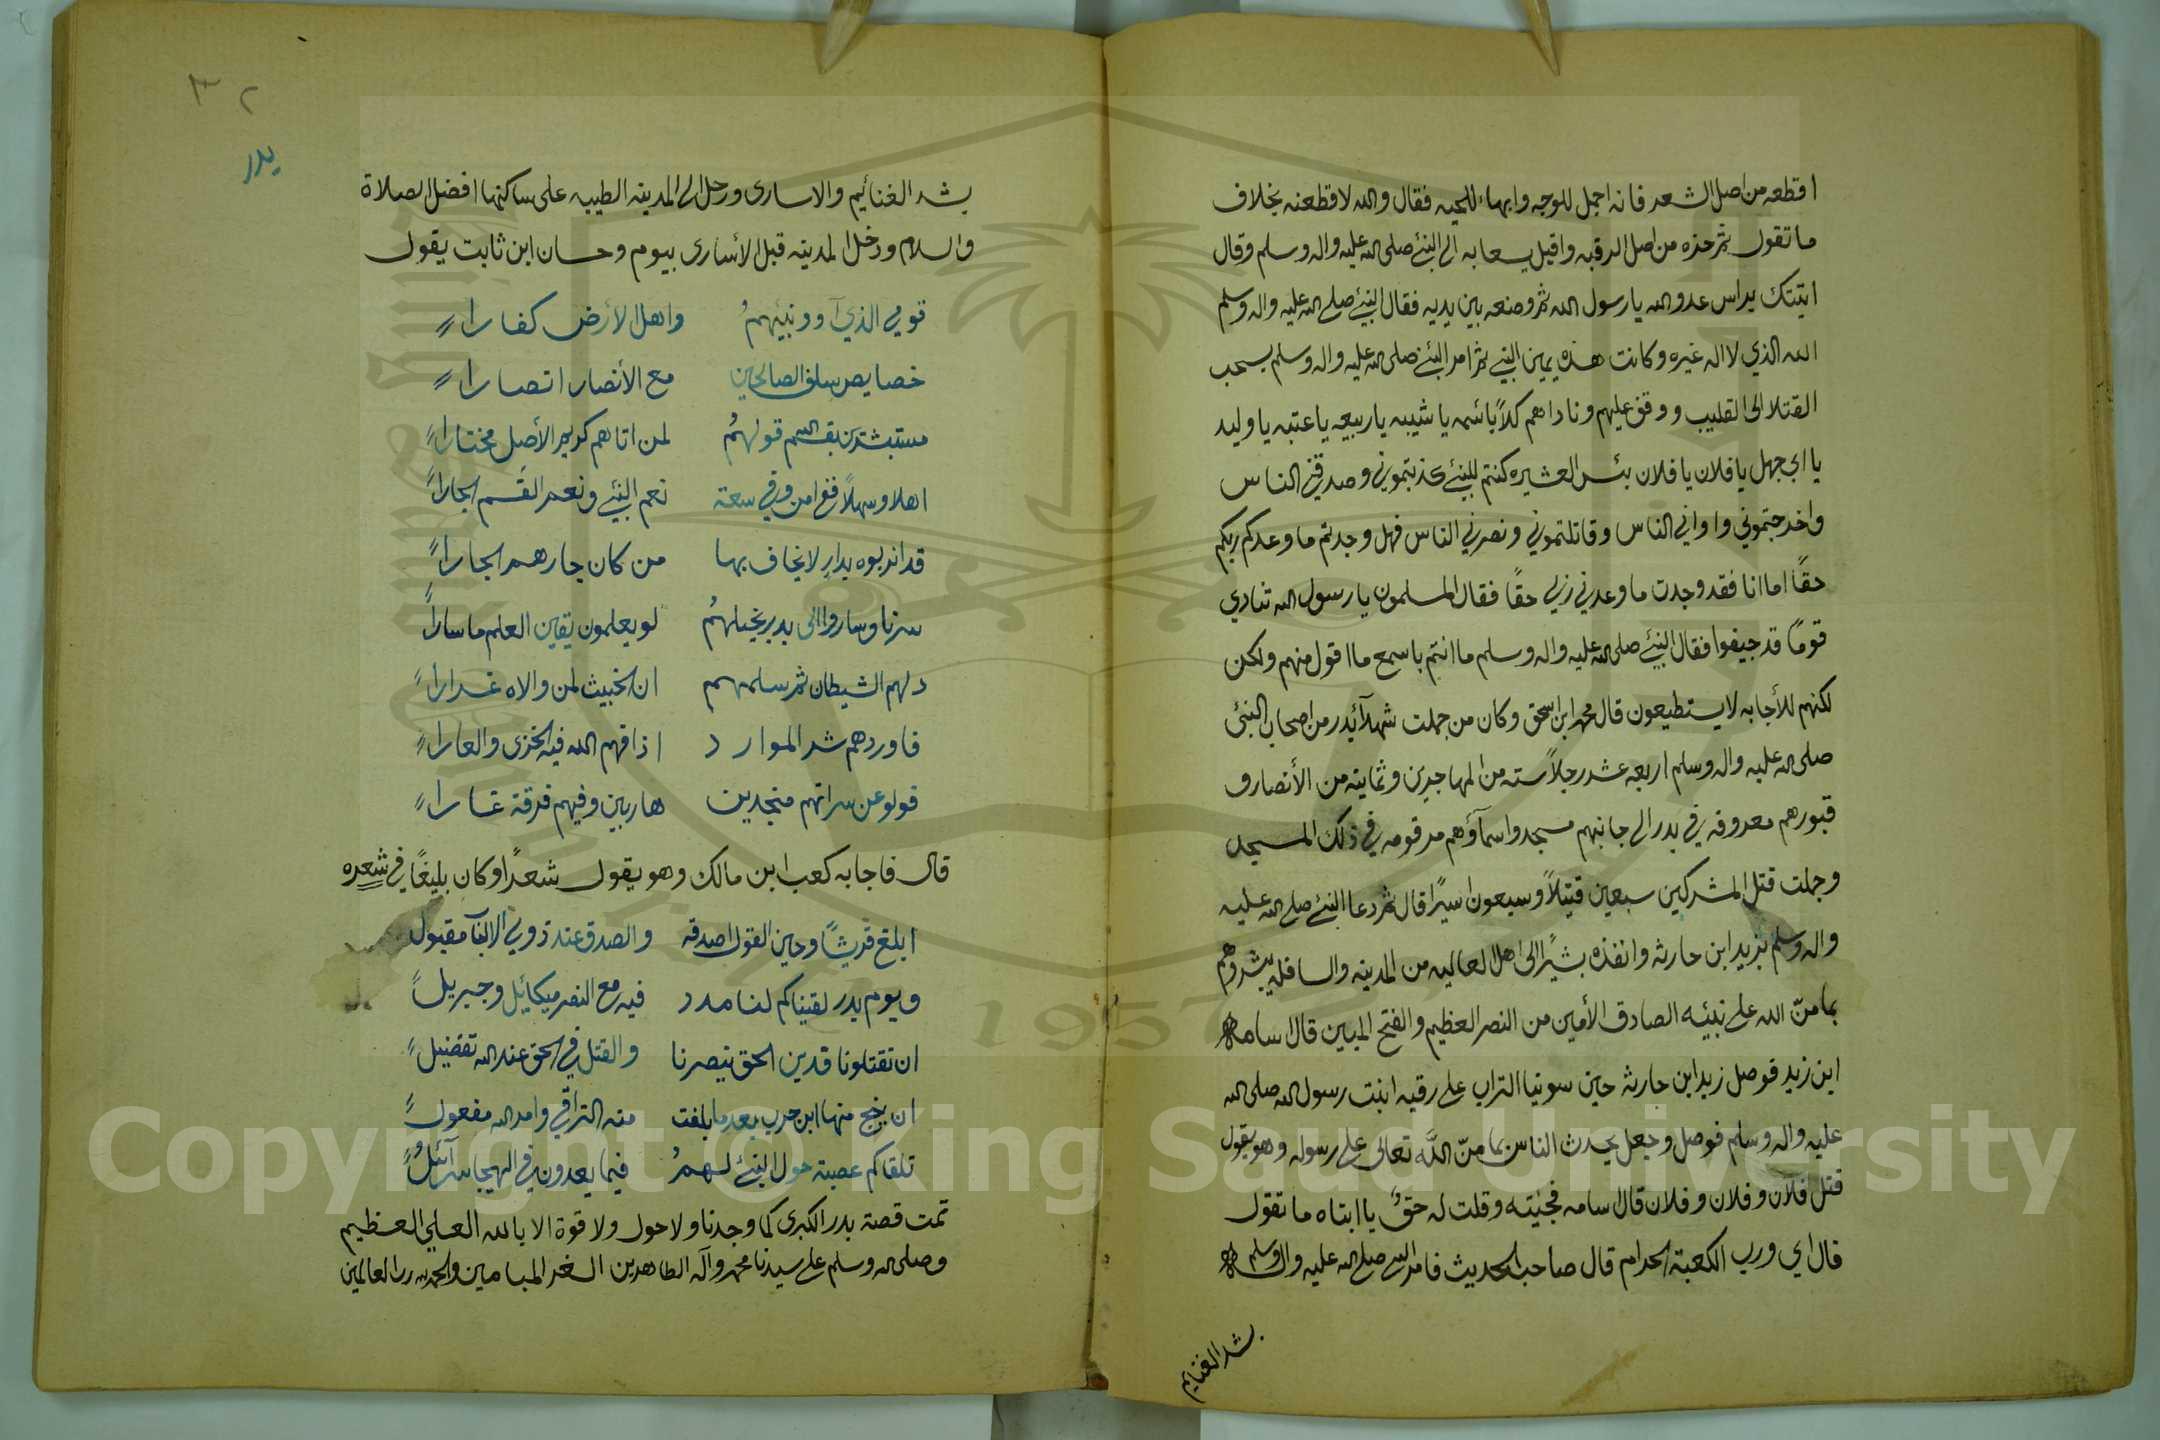 اقطعه من اصل الشعر فانه اجمل للوجه وابهاء للحيه فقال والله لاقطعنه بخلاف
ما تقول ثم حزه من اصل الرقبه واقبل يسعا به الى النبئ صلى الله عليه واله وسلم وقال
اتيتك براس عدو الله يا رسول الله ثم وضعه بين يديه فقال النبئ صلى الله عليه واله وسلم
الله الذي لا اله غيره وكانت هذه يمين النبئ ثم امر النبئ صلى الله عليه واله وسلم بسحب
القتلا الى القليب ووقف عليهم وناداهم كلاً بائسمه يا شيبه يا ربيعه يا عتبه يا وليد
يا ابى جهل يا فلان يا فلان بئس العشيره كنتم للنبئ كذبتموني وصدقني الناس
واخرجتموني واواني الناس وقاتلتموني ونصرني الناس فهل وجدتم ما وعدكم ربكم
حقًا اما انا فقد وجدت ما وعدني ربي حقًا فقال المسلمون يا رسول الله تنادي
قومًا قد جيفوا فقال النبئ صلى الله عليه واله وسلم ما انتم باسمع ما اقول منهم ولكن
لكنهم للأجابه لا يستطيعون قال محمد ابن اسحق وكان من جملت شهدآئ بدر من اصحاب النبئ
صلى الله عليه واله وسلم اربعه عشر رجلاً سته من المهاجرين وثمانيه من الأنصار و
قبورهم معروفه في بدر الى جانبهم مسجد واسمآؤهم مرقومه في ذلك المسجد
وجملت قتل المشركين سبعين قتيلاً وسبعون اسيرًا قال ثم دعا النبئ صلى الله عليه
واله وسلم بزيد ابن حارثه وانفذه بشيرًا الى اهل العاليه من المدينه والسافله يبشروهم
بما منّ الله على نبيئه الصادق الأمين من النصر العظيم والفتح المبين قال اسامه
ابن زيد فوصل زيد ابن حارثه حين سوينا التراب على رقيه ابنت رسول الله صلى الله
عليه واله وسلم فوصل وجعل يحدث الناس بما منّ الله تعالى على رسوله وهو يقول
قتل فلان وفلان وفلان قال اسامه فجئيته وقلت له حقٌ يا ابتاه ما تقول
قال اي ورب الكعبة الحرام قال صاحب الحديث فامر النبي صلى الله عليه واله وسلم
بشد الغنايم
٣٢
بدر
بشد الغنائيم والاسارى ورحل الى المدينه الطيبه على ساكنها افضل الصلاة
والسلام ودخل المدينه قبل الأسارى بيوم وحسان ابن ثابت يقول
قومي الذي آوو نبيئهمُ واهل الأرض كفارا
خصايص سلف الصالحين مع الأنصار انصارا
مستبشرين بقسم الله قولهمُ لمن اتاهم كريم الأصل مختارا
اهلا وسهلاً ففي امن وفي سعته نعم النبئ ونعم القسم الجارا
قد انزبوه بدارٍ لا يخاف بها من كان جارهم الجارا
سرنا وساروا الى بدر بخيلهمُ لو يعلمون يقين العلم ما سارا
دلهم الشيطان ثم سلمهم ان الخبيث لمن والاه غرارا
فاوردهم شر الموارد اذاقهم الله فيه الخزى والعارا
فولو عن سراتهم منجدين هاربين وفيهم فرقة غارا
قال فاجابه كعب ابن مالك وهو يقول شعرًا وكان بليغًا في شعره
ابلغ قريشًا وحين القول اصدقه والصدق عند ذوي الالبآ مقبول
ويوم بدر لقيناكم لنا مدد فيه مع النصر ميكائل وجبريل
ان تقتلونا فدين الحق ينصرنا والقتل في الحق عند الله تفضيل
ان ينج منها ابن حرب بعد ما بلغت منه التراقي وامر الله مفعول
تلقاكم عصبة حول النبئ لهمُ فيما يعدون في الهيجا سرآئيلُ
تمت قصة بدر الكبرى كما وجدنا ولا حول ولا قوة الا بالله العلي العظيم
وصلى الله وسلم على سيدنا محمد وآله الطاهرين الغر الميامين والحمد لله رب العالمين
Copyright © King Saud University
1957